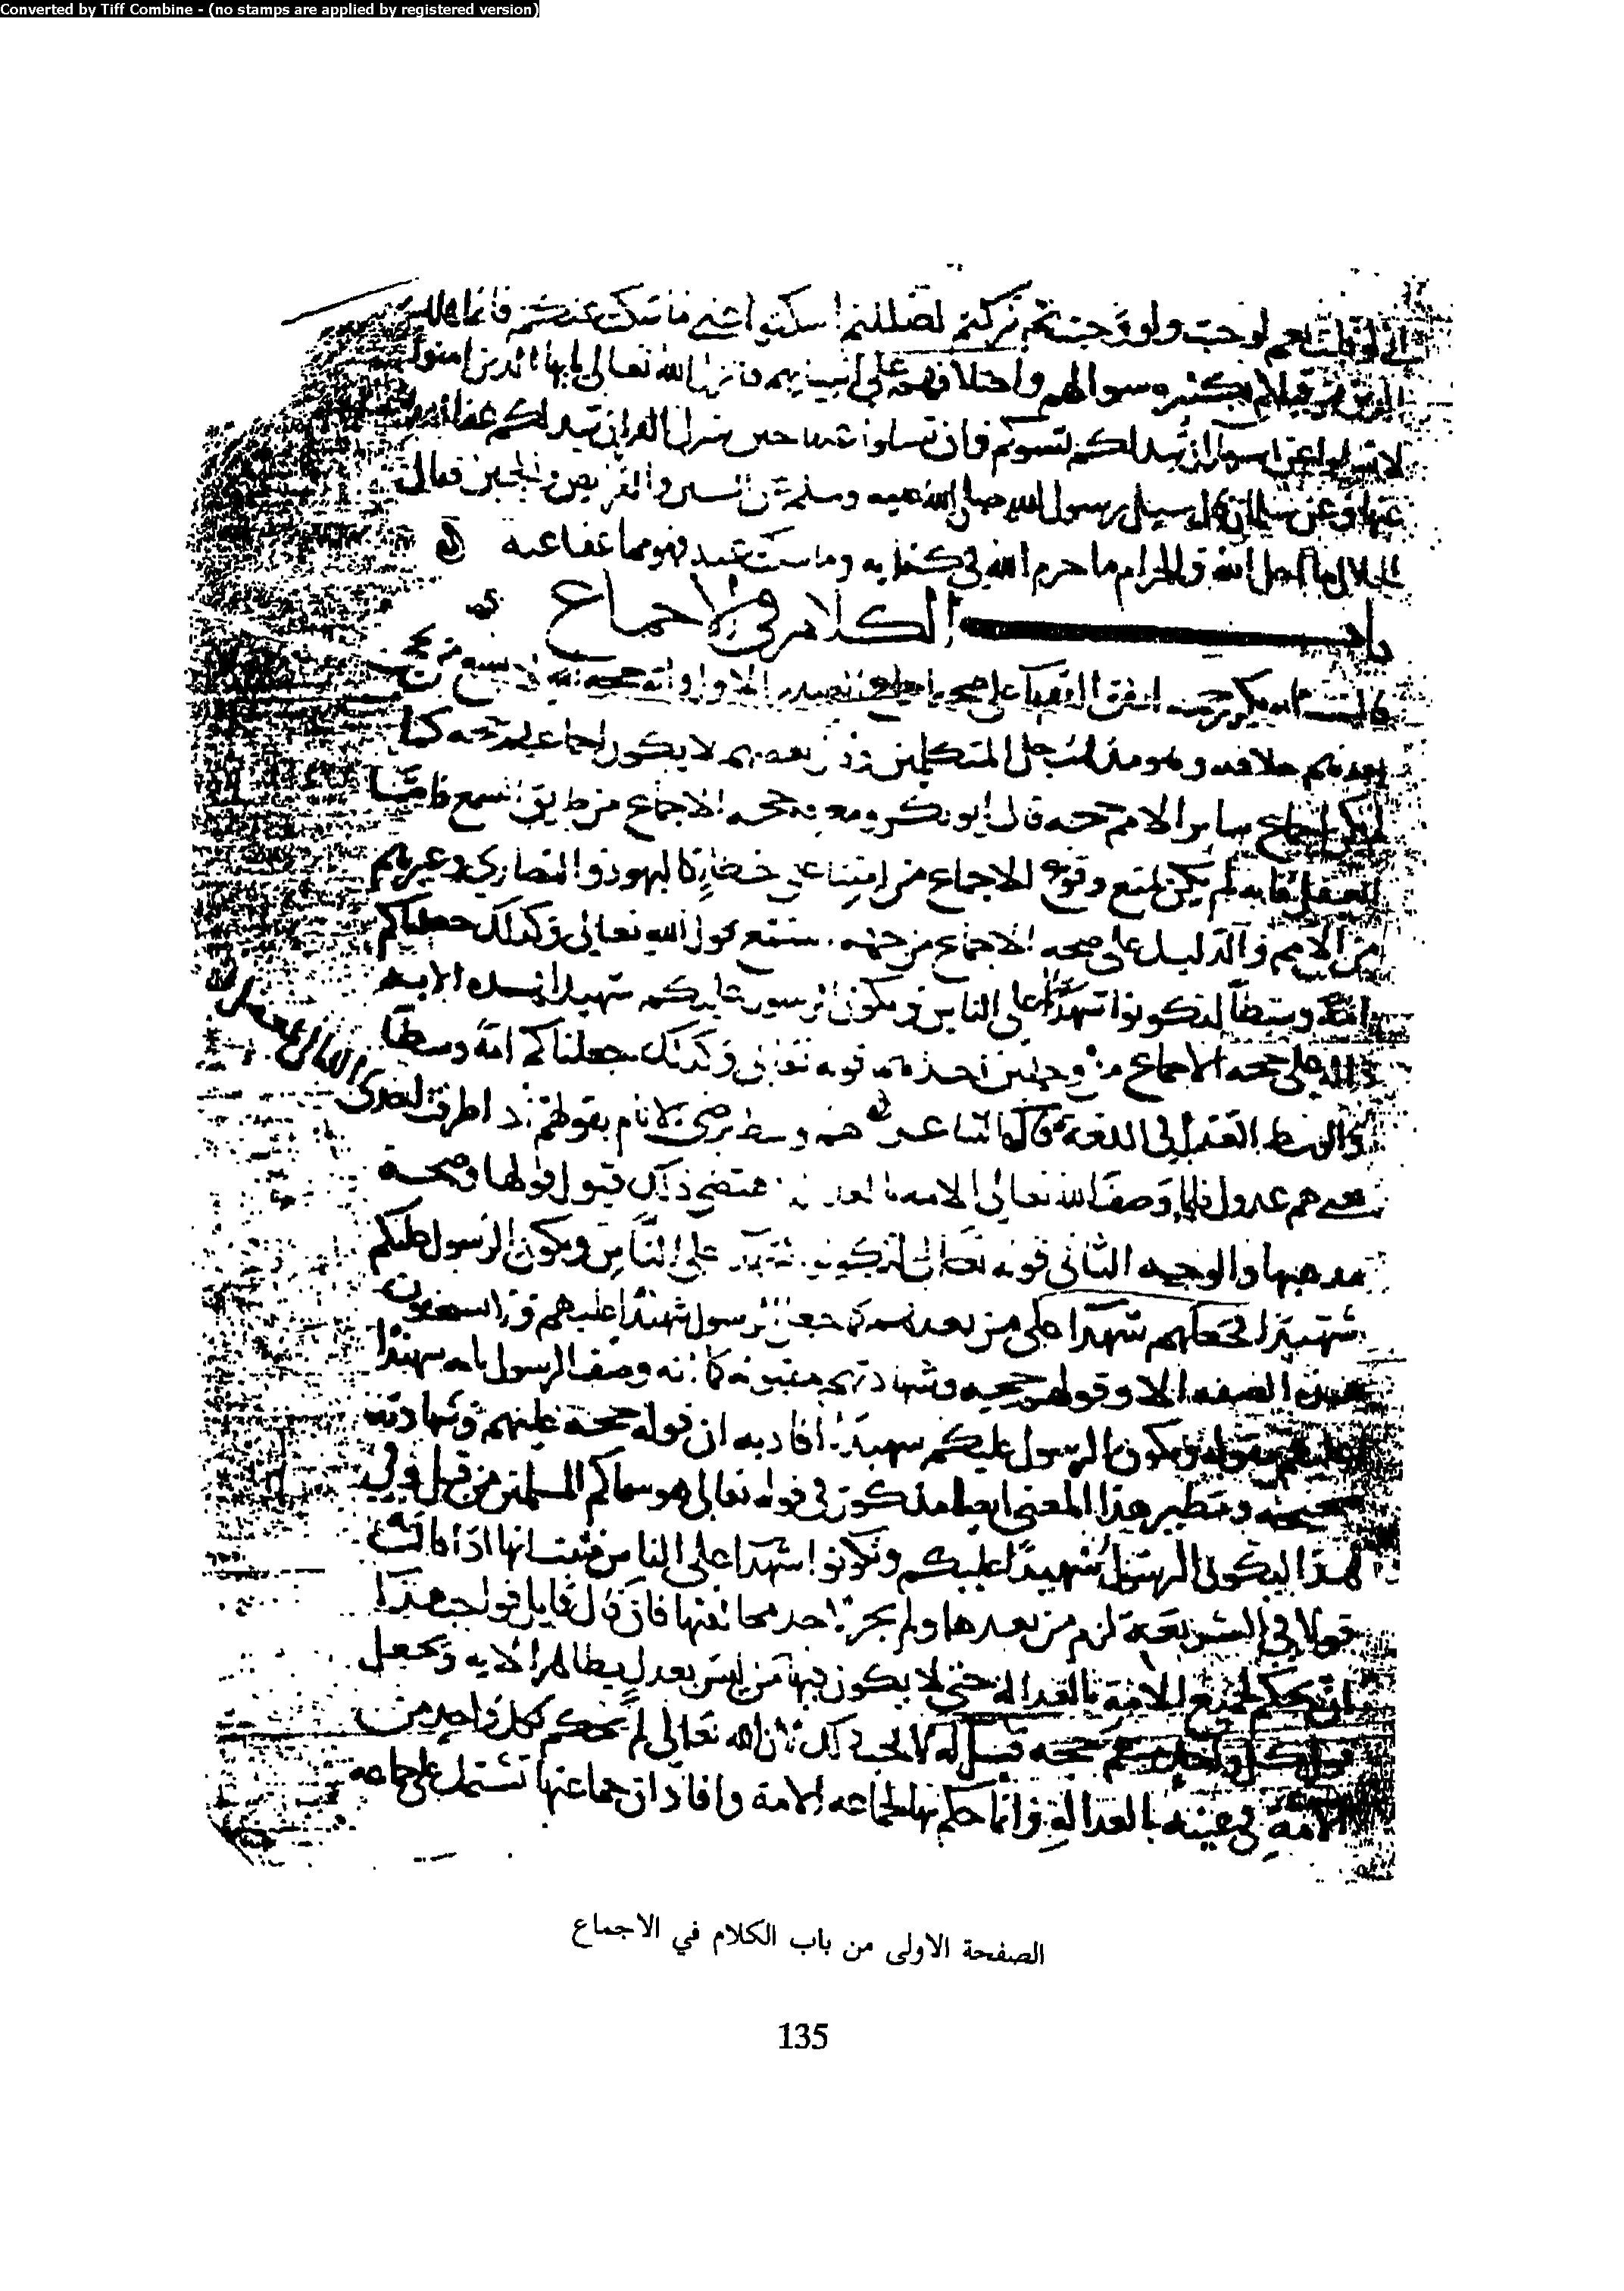 Converted by Tiff Combine - (no stamps are applied by registered version)
لو قلت نعم لوجبت ولو وجبت ثم تركتم لضللتم اسكتوا عني ما سكت عنكم فانما هلك
الذين من قبلكم بكثره سوالهم واختلافهم على انبيايهم فانزل الله تعالى يايها الذين امنوا
لا تسلوا عن اشيا ان تبد لكم تسوكم وان تسلوا عنها حين ينزل القران تبد لكم عفا الله
عنها وعن سلمان قال سيل رسول الله صلى الله عليه وسلم عن السمن والجبن فقال
الحلال ما احل الله والحرام ما حرم الله في كتابه وما سكت عنه فهو مما عفا عنه
باب الكلام في الاجماع
قال ابو بكر اتفق الفقها على صحه اجماع الصدر الاول وانه حجه الله لا يسع من يجي
بعدهم خلافه وهو مذهب جل المتكلمين وقال بعضهم لا يكون اجماعهم حجه كما
لم يكن اجماع ساير الامم حجه قال ابو بكر ومعرفه حجه الاجماع من طريق السمع فاما
العقل فانه لم يكن يمنع وقوع الاجماع من امتنا على خطا كاليهود والنصارى وغيرهم
من الامم والدليل على صحه الاجماع من جهه السمع قول الله تعالى وكذلك جعلناكم
امه وسطا لتكونوا شهدا على الناس ويكون الرسول عليكم شهيدا الايه
داله على حجه الاجماع من وجهين احدهما قوله تعالى وكذلك جعلناكم امة وسطا
والوسط العدل في اللغة قال الشاعر هم وسط يرضى الانام بقولهم اذا طرقت احدى الليالي
يعني هم عدول فلما وصف الله تعالى الامه بالعداله اقتضى ذلك قبول قولها وصحة
مذهبها والوجه الثاني قوله تعالى لتكونوا شهدا على الناس ويكون الرسول عليكم
شهيدا فجعلهم شهدا على من بعدهم كما جعل الرسول شهيدا عليهم ولا يستحقون
هذه الصفه الا وقولهم حجه وشهادتهم مقبوله كما انه وصف الرسول بانه شهيدا
عليهم بقوله ويكون الرسول عليكم شهيدا افاد به ان قوله حجة عليهم وشهادته
صحيحه ونظير هذا المعنى ايضا مذكور في قوله تعالى هو سماكم المسلمين من قبل وفي
هذا ليكون الرسول شهيدا عليكم وتكونوا شهدا على الناس فثبت انها اذا قالت
قولا في الشريعة لزم من بعدها ولم يجز لاحد مخالفتها فان قال قايل فواجب على هذا
ان يحكم لجميع الامة بالعدالة حتى لا يكون فيها من ليس بعدل لظاهر الايه وتجعل
قول كل واحد منهم حجه قيل له لا يجب ذلك لان الله تعالى لم يحكم لكل واحد من
الامة في عينه بالعدالة وانما حكم بها لجماعه الامة وافاد ان جماعتها تشتمل على جماعه
الصفحة الاولى من باب الكلام في الاجماع
135